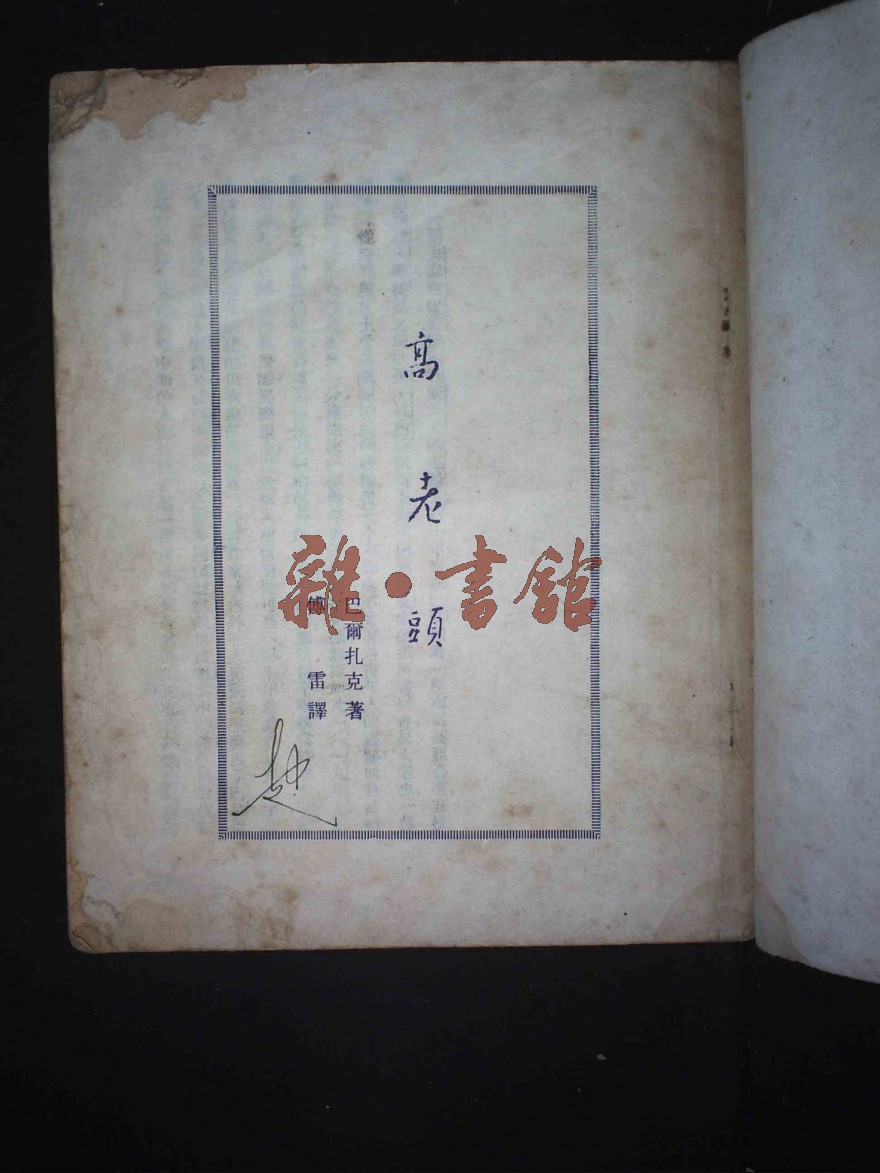 高老頭
巴爾扎克著
傅雷譯
雜·書館